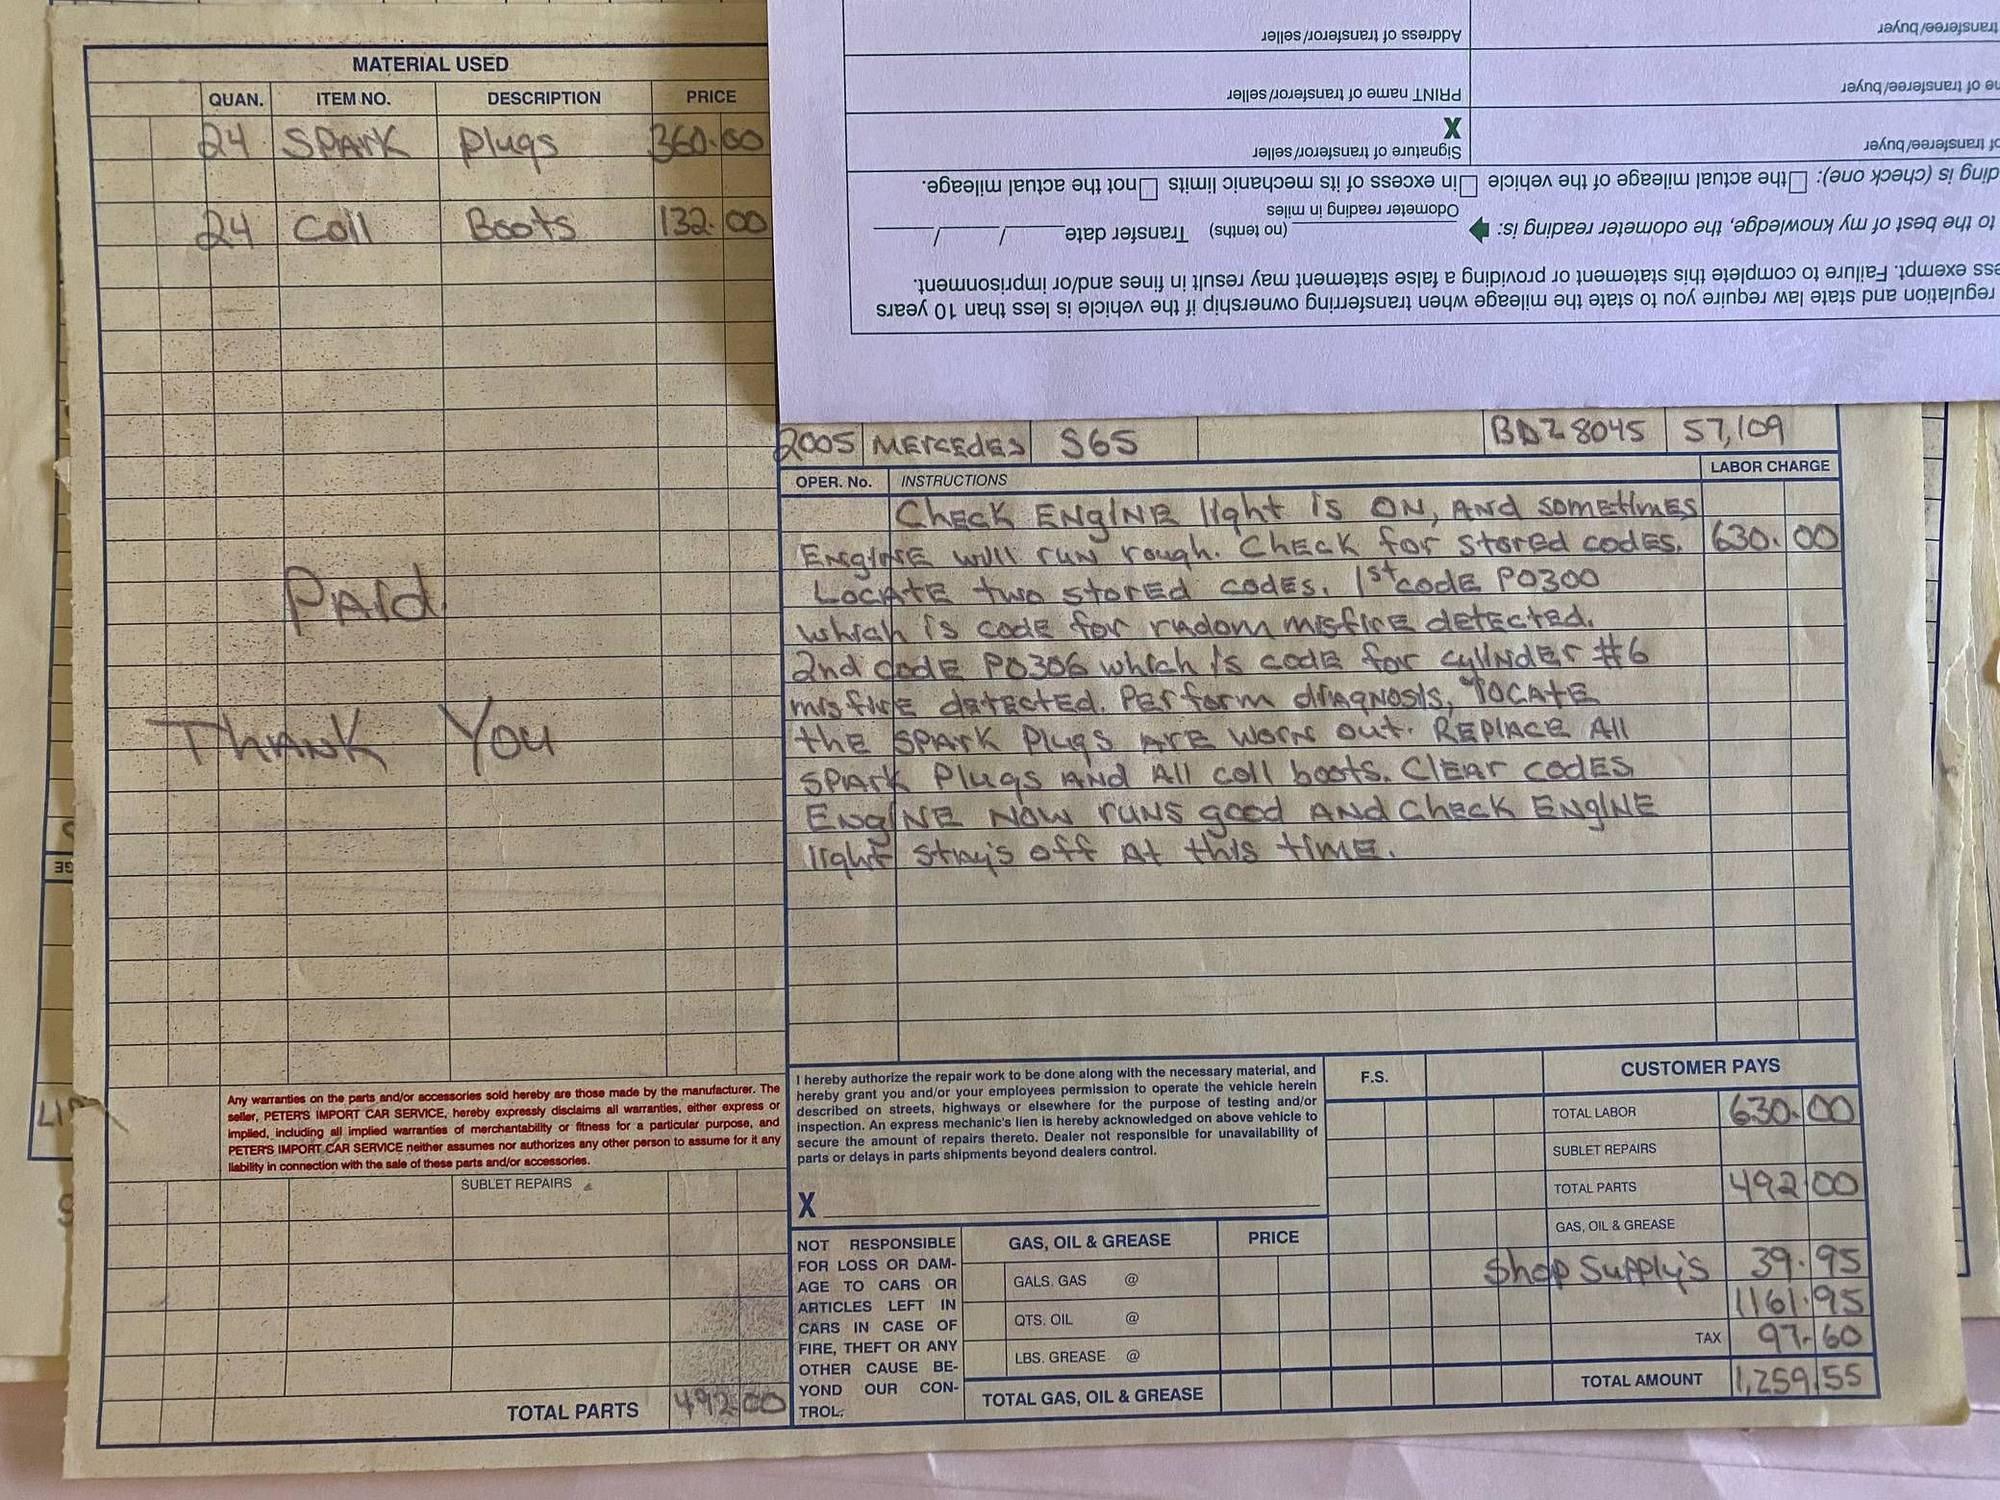 MATERIAL USED
QUAN. ITEM NO. DESCRIPTION PRICE
24 SPARK Plugs 360.00
24 Coil Boots 132.00
PAid.
THANK You
Any warranties on the parts and/or accessories sold hereby are those made by the manufacturer. The
seller, PETER'S IMPORT CAR SERVICE, hereby expressly disclaims all warranties, either express or
implied, including all implied warranties of merchantability or fitness for a particular purpose, and
PETER'S IMPORT CAR SERVICE neither assumes nor authorizes any other person to assume for it any
liability in connection with the sale of these parts and/or accessories.
SUBLET REPAIRS
TOTAL PARTS 492.00
regulation and state law require you to state the mileage when transferring ownership if the vehicle is less than 10 years
exempt. Failure to complete this statement or providing a false statement may result in fines and/or imprisonment.
to the best of my knowledge, the odometer reading is: (no tenths) Transfer date / /
Odometer reading in miles
ding is (check one): the actual mileage of the vehicle in excess of its mechanic limits not the actual mileage.
of transferee/buyer Signature of transferor/seller
X
of transferee/buyer PRINT name of transferor/seller
transferee/buyer Address of transferor/seller
2005 MERCEDES S65 BDZ8045 57,109
OPER. No. INSTRUCTIONS LABOR CHARGE
Check ENgiNE light is ON, AND sometimes
ENgiNE will run rough. Check for stored codes. 630.00
Locate two stored codes. 1st code P0300
which is code for radom misfire detected.
2nd code P0306 which is code for cylinder #6
misfire detected. Perform diagnosis, locate
the SPARK Plugs ARE worn out. Replace All
SPARK Plugs AND All coil boots. Clear codes
ENgiNE Now runs good AND Check ENgiNE
light stay's off At this time.
I hereby authorize the repair work to be done along with the necessary material, and
hereby grant you and/or your employees permission to operate the vehicle herein
described on streets, highways or elsewhere for the purpose of testing and/or
inspection. An express mechanic's lien is hereby acknowledged on above vehicle to
secure the amount of repairs thereto. Dealer not responsible for unavailability of
parts or delays in parts shipments beyond dealers control.
X
NOT RESPONSIBLE
FOR LOSS OR DAM-
AGE TO CARS OR
ARTICLES LEFT IN
CARS IN CASE OF
FIRE, THEFT OR ANY
OTHER CAUSE BE-
YOND OUR CON-
TROL.
GAS, OIL & GREASE PRICE
GALS. GAS @
QTS. OIL @
LBS. GREASE @
TOTAL GAS, OIL & GREASE
F.S. CUSTOMER PAYS
TOTAL LABOR 630.00
SUBLET REPAIRS
TOTAL PARTS 492.00
GAS, OIL & GREASE
Shop Supply's 39.95
1161.95
TAX 97.60
TOTAL AMOUNT 1,259.55